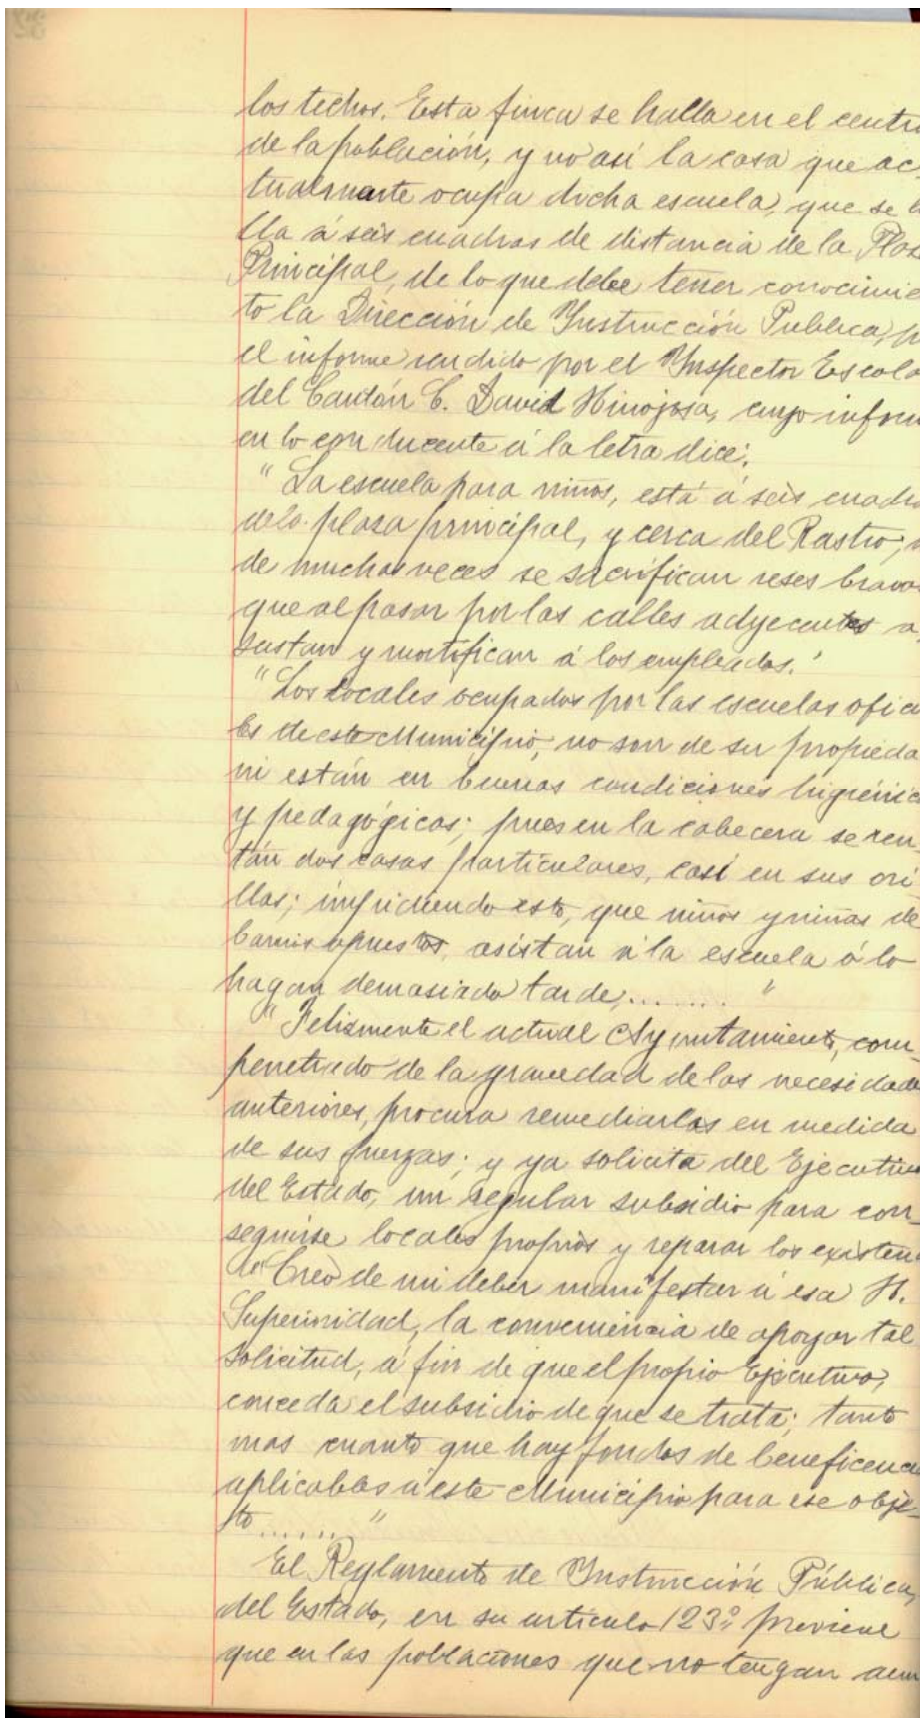 los techos. Esta finca se halla en el centr
de la población, y no así la casa que ac
tualmente ocupa dicha escuela, que se
lla á seis cuadras de distancia de la Plas
Principal, de lo que debe tener conocimie
to la Dirección de Ynstrucción Publica, p
el informe rendido por el Ynspector Escola
del Cantón C. David Hinojosa, cuyo inform
en lo conducente á la letra dice:
"La escuela para niños, está á seis cuadr
de la plasa principal, y cerca del Rastro,
de muchas veces se sacrifican reses bravas
que al pasar por las calles adyecentes a
sustan y mortifican á los empleados."
"Los locales ocupados por las escuelas oficia
les de este Municipio, no son de su propieda
ni están en buenas condiciones higiénic
y pedagógicas; pues en la cabecera se ren
tan dos casas particulares, casi en sus ori
llas; impidiendo esto, que niños y niñas de
barrios opuestos, asistan á la escuela ó lo
hagan demasiado tarde,........"
"Felizmente el actual Ayuntamiento, com-
penetrado de la gravedad de las necesidade
anteriores, procura remediarlas en medida
de sus fuerzas; y ya solicita del Ejecutivo
del Estado, un regular subsidio para con
seguirse locales propios y reparar los existen
Creo de mi deber manifestar á esa H.
Superioridad, la conveniencia de apoyar tal
solicitud, á fin de que el propio Ejecutivo,
conceda el subsidio de que se trata; tanto
mas cuanto que hay fondos de beneficenci
aplicables á este Municipio para ese obje-
to......"
El Reglamento de Ynstrucción Pública,
del Estado, en su artículo 123º previene
que en las poblaciones que no tengan